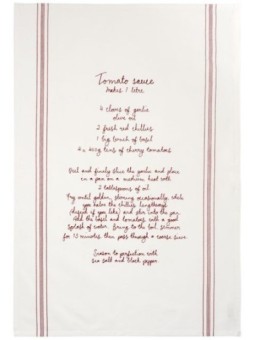 Tomato sauce
makes 1 litre
4 cloves of garlic
olive oil
2 fresh red chillies
1 big bunch of basil
4 x 400g tins of cherry tomatoes
Peel and finely slice the garlic and place
in a pan on a medium heat with
2 tablespoons of oil
Fry until golden, stirring occasionally, while
you halve the chillies lengthways
(deseed if you like) and stir into the pan.
Add the basil and tomatoes with a good
splash of water. Bring to the boil, simmer
for 15 minutes then pass through a coarse sieve.
Season to perfection with
sea salt and black pepper